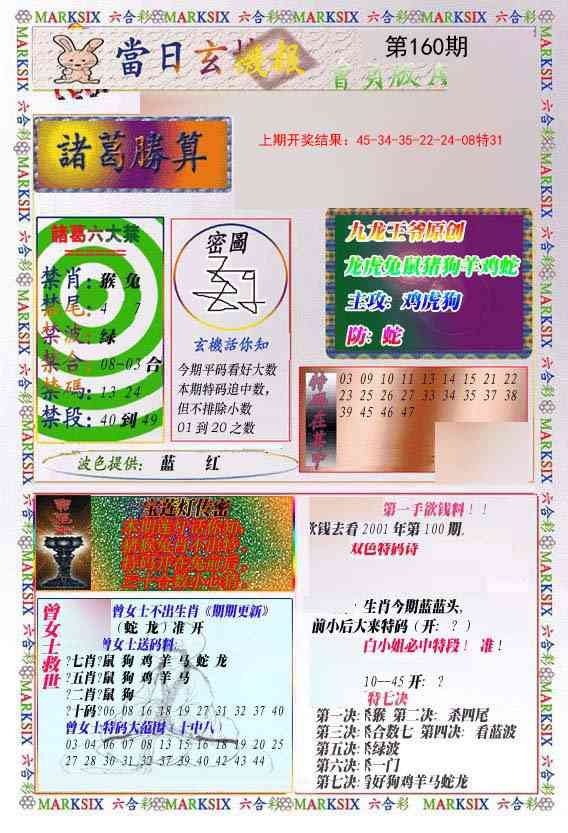 MARKSIX 六合彩 MARKSIX 六合彩 MARKSIX 六合彩 MARKSIX 六合彩
當日玄機報
第160期
上期开奖结果：45-34-35-22-24-08特31
諸葛勝算
諸葛六大禁
禁肖：猴 兔
禁尾：4 7
禁波：绿
禁合：08-03 合
禁碼：13 24
禁段：40 到 49
密圖
玄機活你知
今期平码看好大数
本期特码追中数，
但不排除小数
01 到 20 之数
九龙王爷原创
龙虎兔鼠猪狗羊鸡蛇
主攻：鸡虎狗
防：蛇
03 09 10 11 13 14 15 21 22
23 25 26 27 33 34 35 37 38
39 45 46 47
波色提供： 蓝 红
宝莲灯传密
第一手欲钱料！！
欲钱去看 2001 年第 100 期.
双色特码诗
生肖今期蓝蓝头,
前小后大来特码（开：？）
白小姐必中特段！ 准！
10--45 开：？
特七决
第一决:杀猴 第二决: 杀四尾
第三决:杀合数七 第四决: 看蓝波
第五决:杀绿波
第六决:杀一门
第七决:看好狗鸡羊马蛇龙
曾女士救世
曾女士不出生肖《期期更新》
（蛇 龙）准 开
曾女士送码料:
?七肖?鼠 狗 鸡 羊 马 蛇 龙
?五肖?鼠 狗 鸡 羊 马
?二肖?鼠 狗
?十码?06 08 16 18 19 27 31 32 37 40
曾女士特码大范围（十中八）
03 04 06 07 08 13 15 16 18 19 20 25
27 28 30 31 32 37 39 40 42 43 44
MARKSIX 六合彩 MARKSIX 六合彩 MARKSIX 六合彩 MARKSIX 六合彩